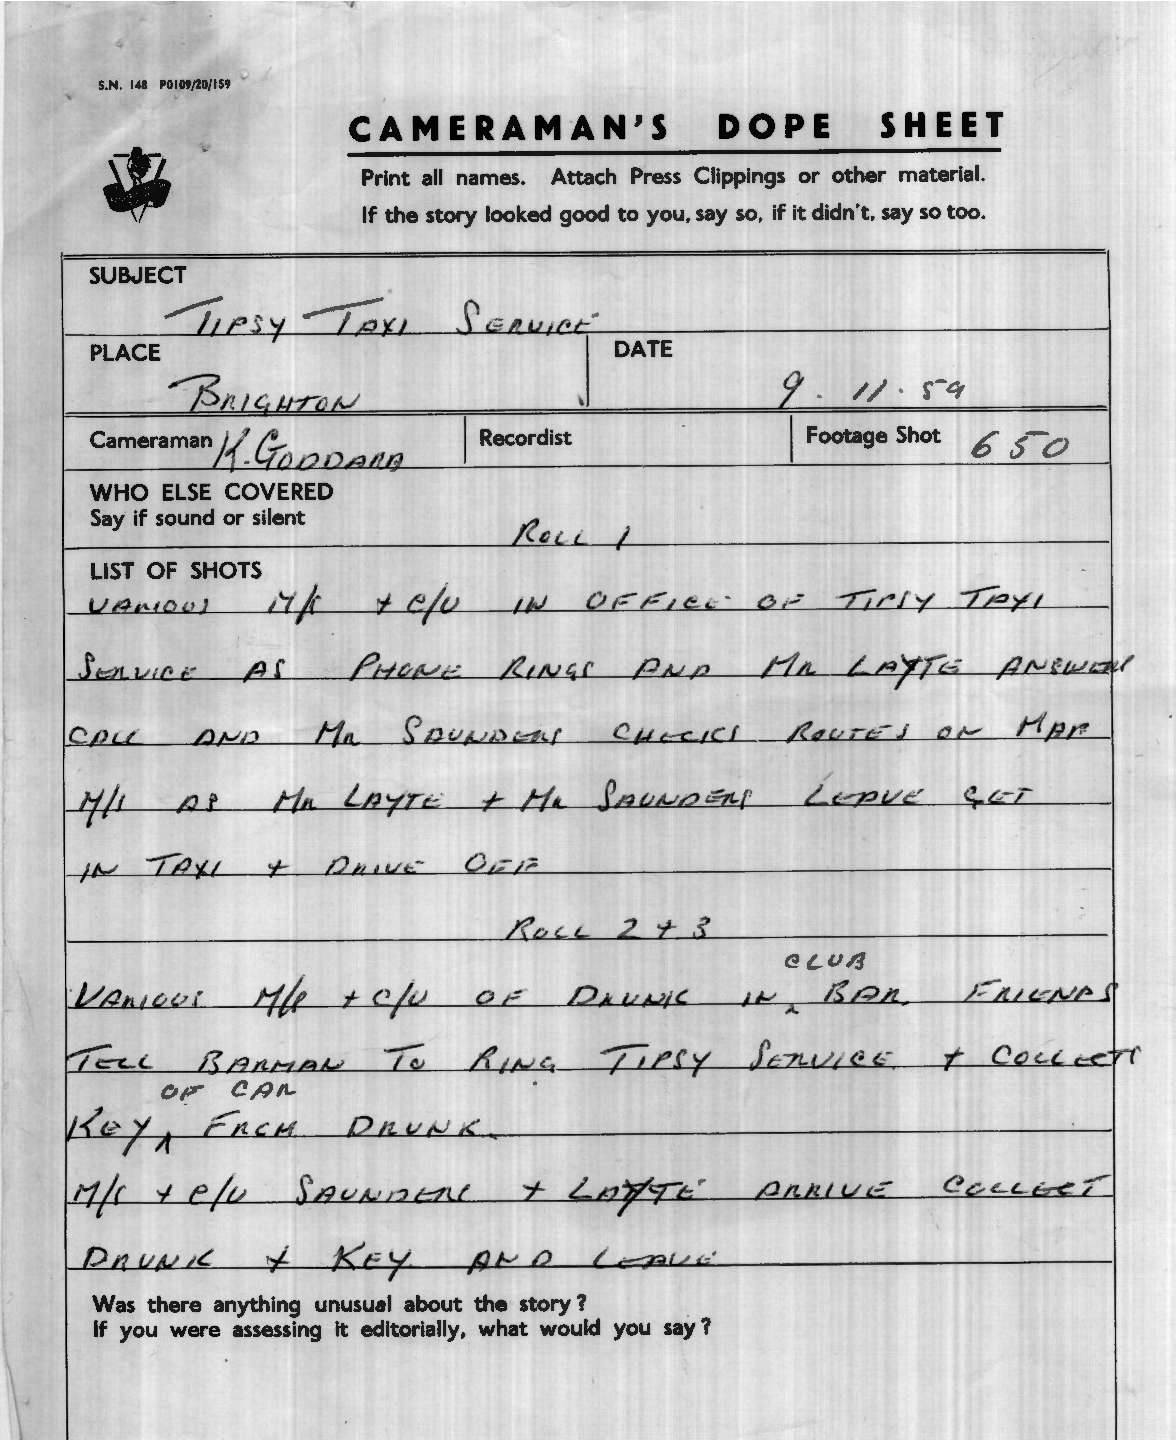 S.N. 148 P0109/20/159
CAMERAMAN'S DOPE SHEET
Print all names. Attach Press Clippings or other material.
If the story looked good to you, say so, if it didn't, say so too.
SUBJECT
TIPSY TAXI SERVICE
PLACE
BRIGHTON
DATE
9.11.59
Cameraman K. GODDARD
Recordist
Footage Shot 650
WHO ELSE COVERED
Say if sound or silent
ROLL 1
LIST OF SHOTS
VARIOUS M/S + C/U IN OFFICE OF TIPSY TAXI
SERVICE AS PHONE RINGS AND MR LAYTE ANSWERS
CALL AND MR SAUNDERS CHECKS ROUTES ON MAP
M/S AS MR LAYTE + MR SAUNDERS LEAVE GET
IN TAXI + DRIVE OFF
ROLL 2 + 3
VARIOUS M/S + C/U OF DRUNK IN CLUB BAR. FRIENDS
TELL BARMAN TO RING TIPSY SERVICE + COLLECTS
KEY OF CAR FROM DRUNK.
M/S + C/U SAUNDERS + LAYTE ARRIVE COLLECT
DRUNK + KEY AND LEAVE
Was there anything unusual about the story?
If you were assessing it editorially, what would you say?